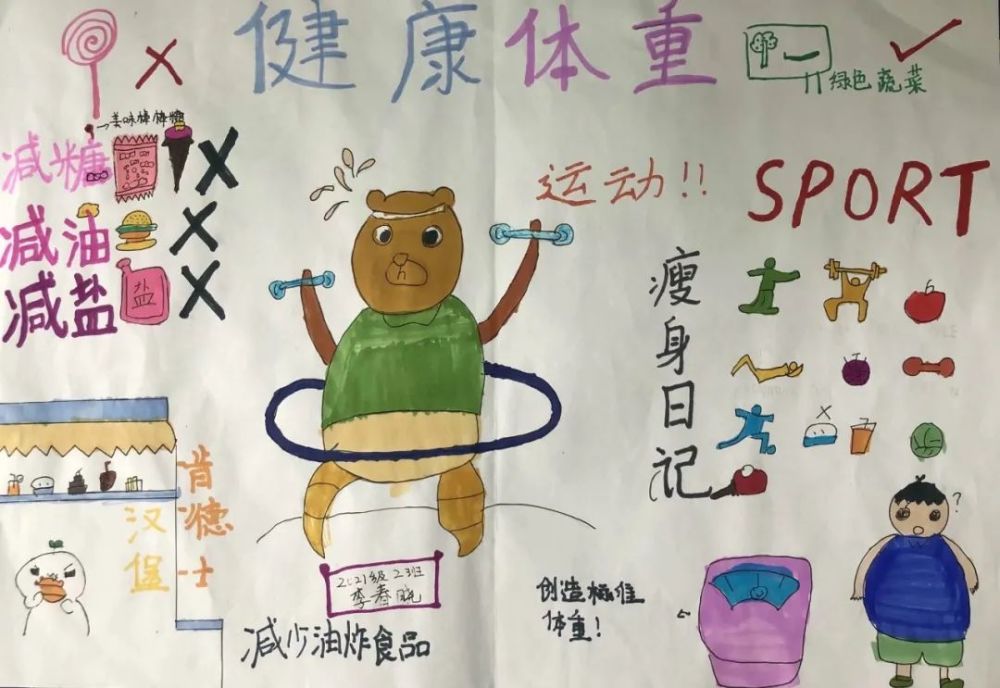 健康体重
绿色蔬菜
美味棒棒糖
减糖
减油
减盐
盐
运动!!
SPORT
瘦身日记
肯德士
汉堡
2021级23班
李春晓
减少油炸食品
创造标准
体重!
?